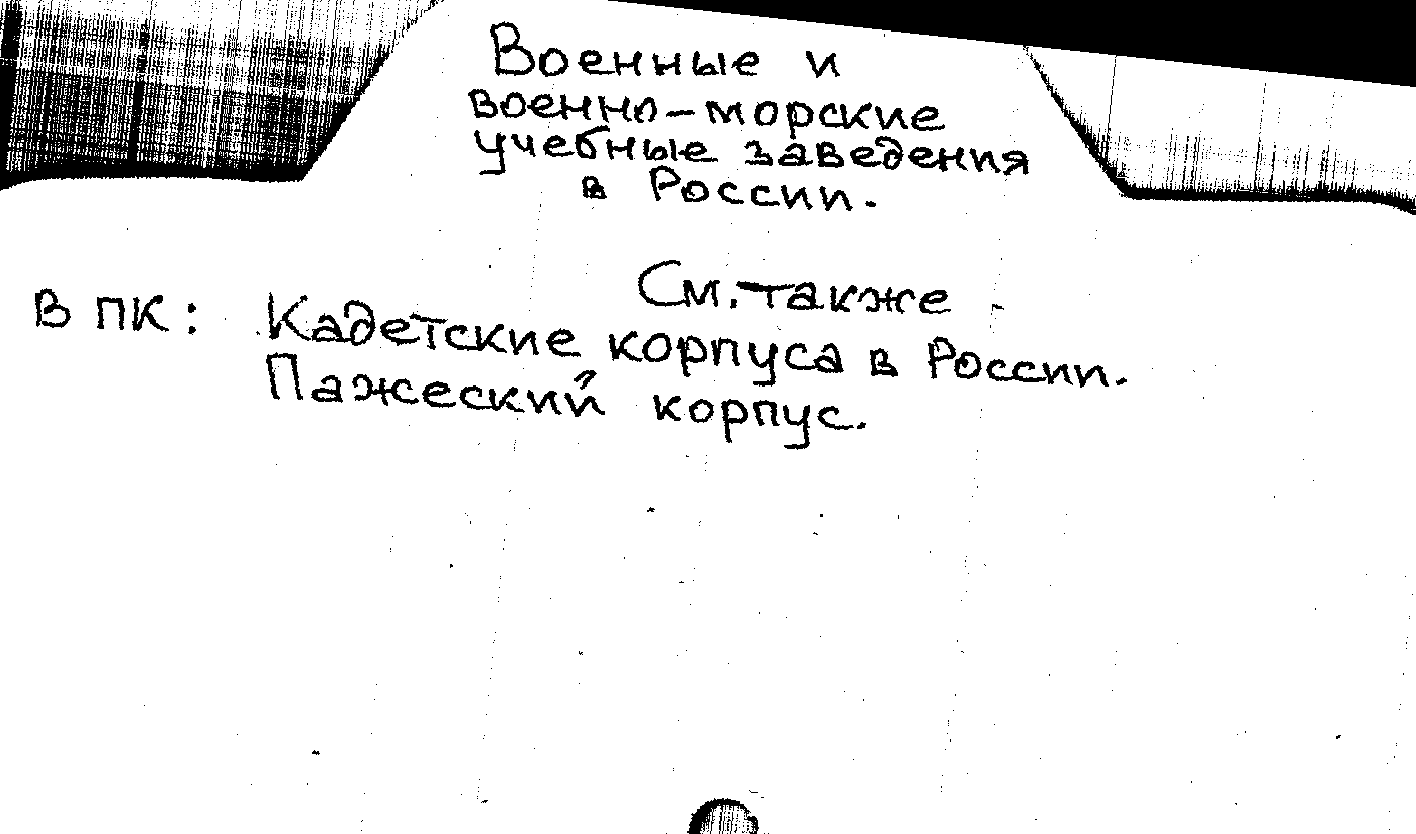 Военные и
военно-морские
учебные заведения
в России.
См. также
В ПК: Кадетские корпуса в России.
Пажеский корпус.